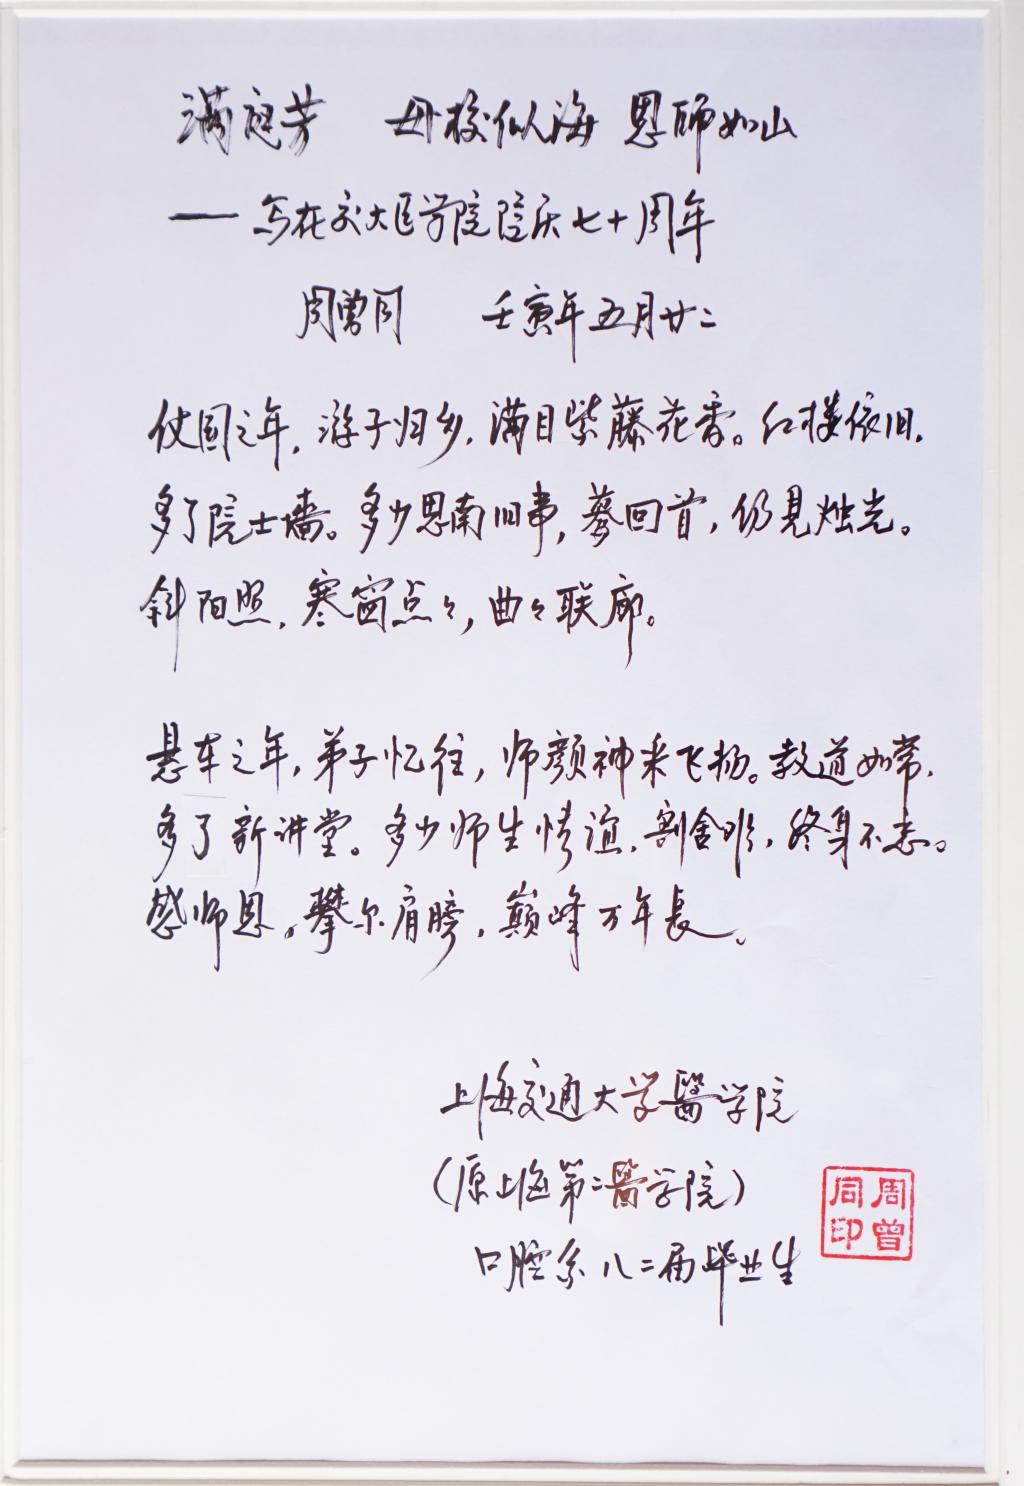 满庭芳 母校似海 恩师如山
——写在交大医学院院庆七十周年
周曾同 壬寅年五月廿二
仗国之年，游子归乡，满目紫藤花香。红楼依旧，
多了院士墙。多少思南旧事，蓦回首，仍见烛光。
斜阳照，寒窗点々，曲々联廊。
悬车之年，弟子忆往，师颜神采飞扬。教道如常，
多了新讲堂。多少师生情谊，割舍难，终身不忘。
感师恩。攀尔肩膀，巅峰万年长。
上海交通大学醫学院
（原上海第二醫学院）
口腔系八二届毕业生
周曾同印